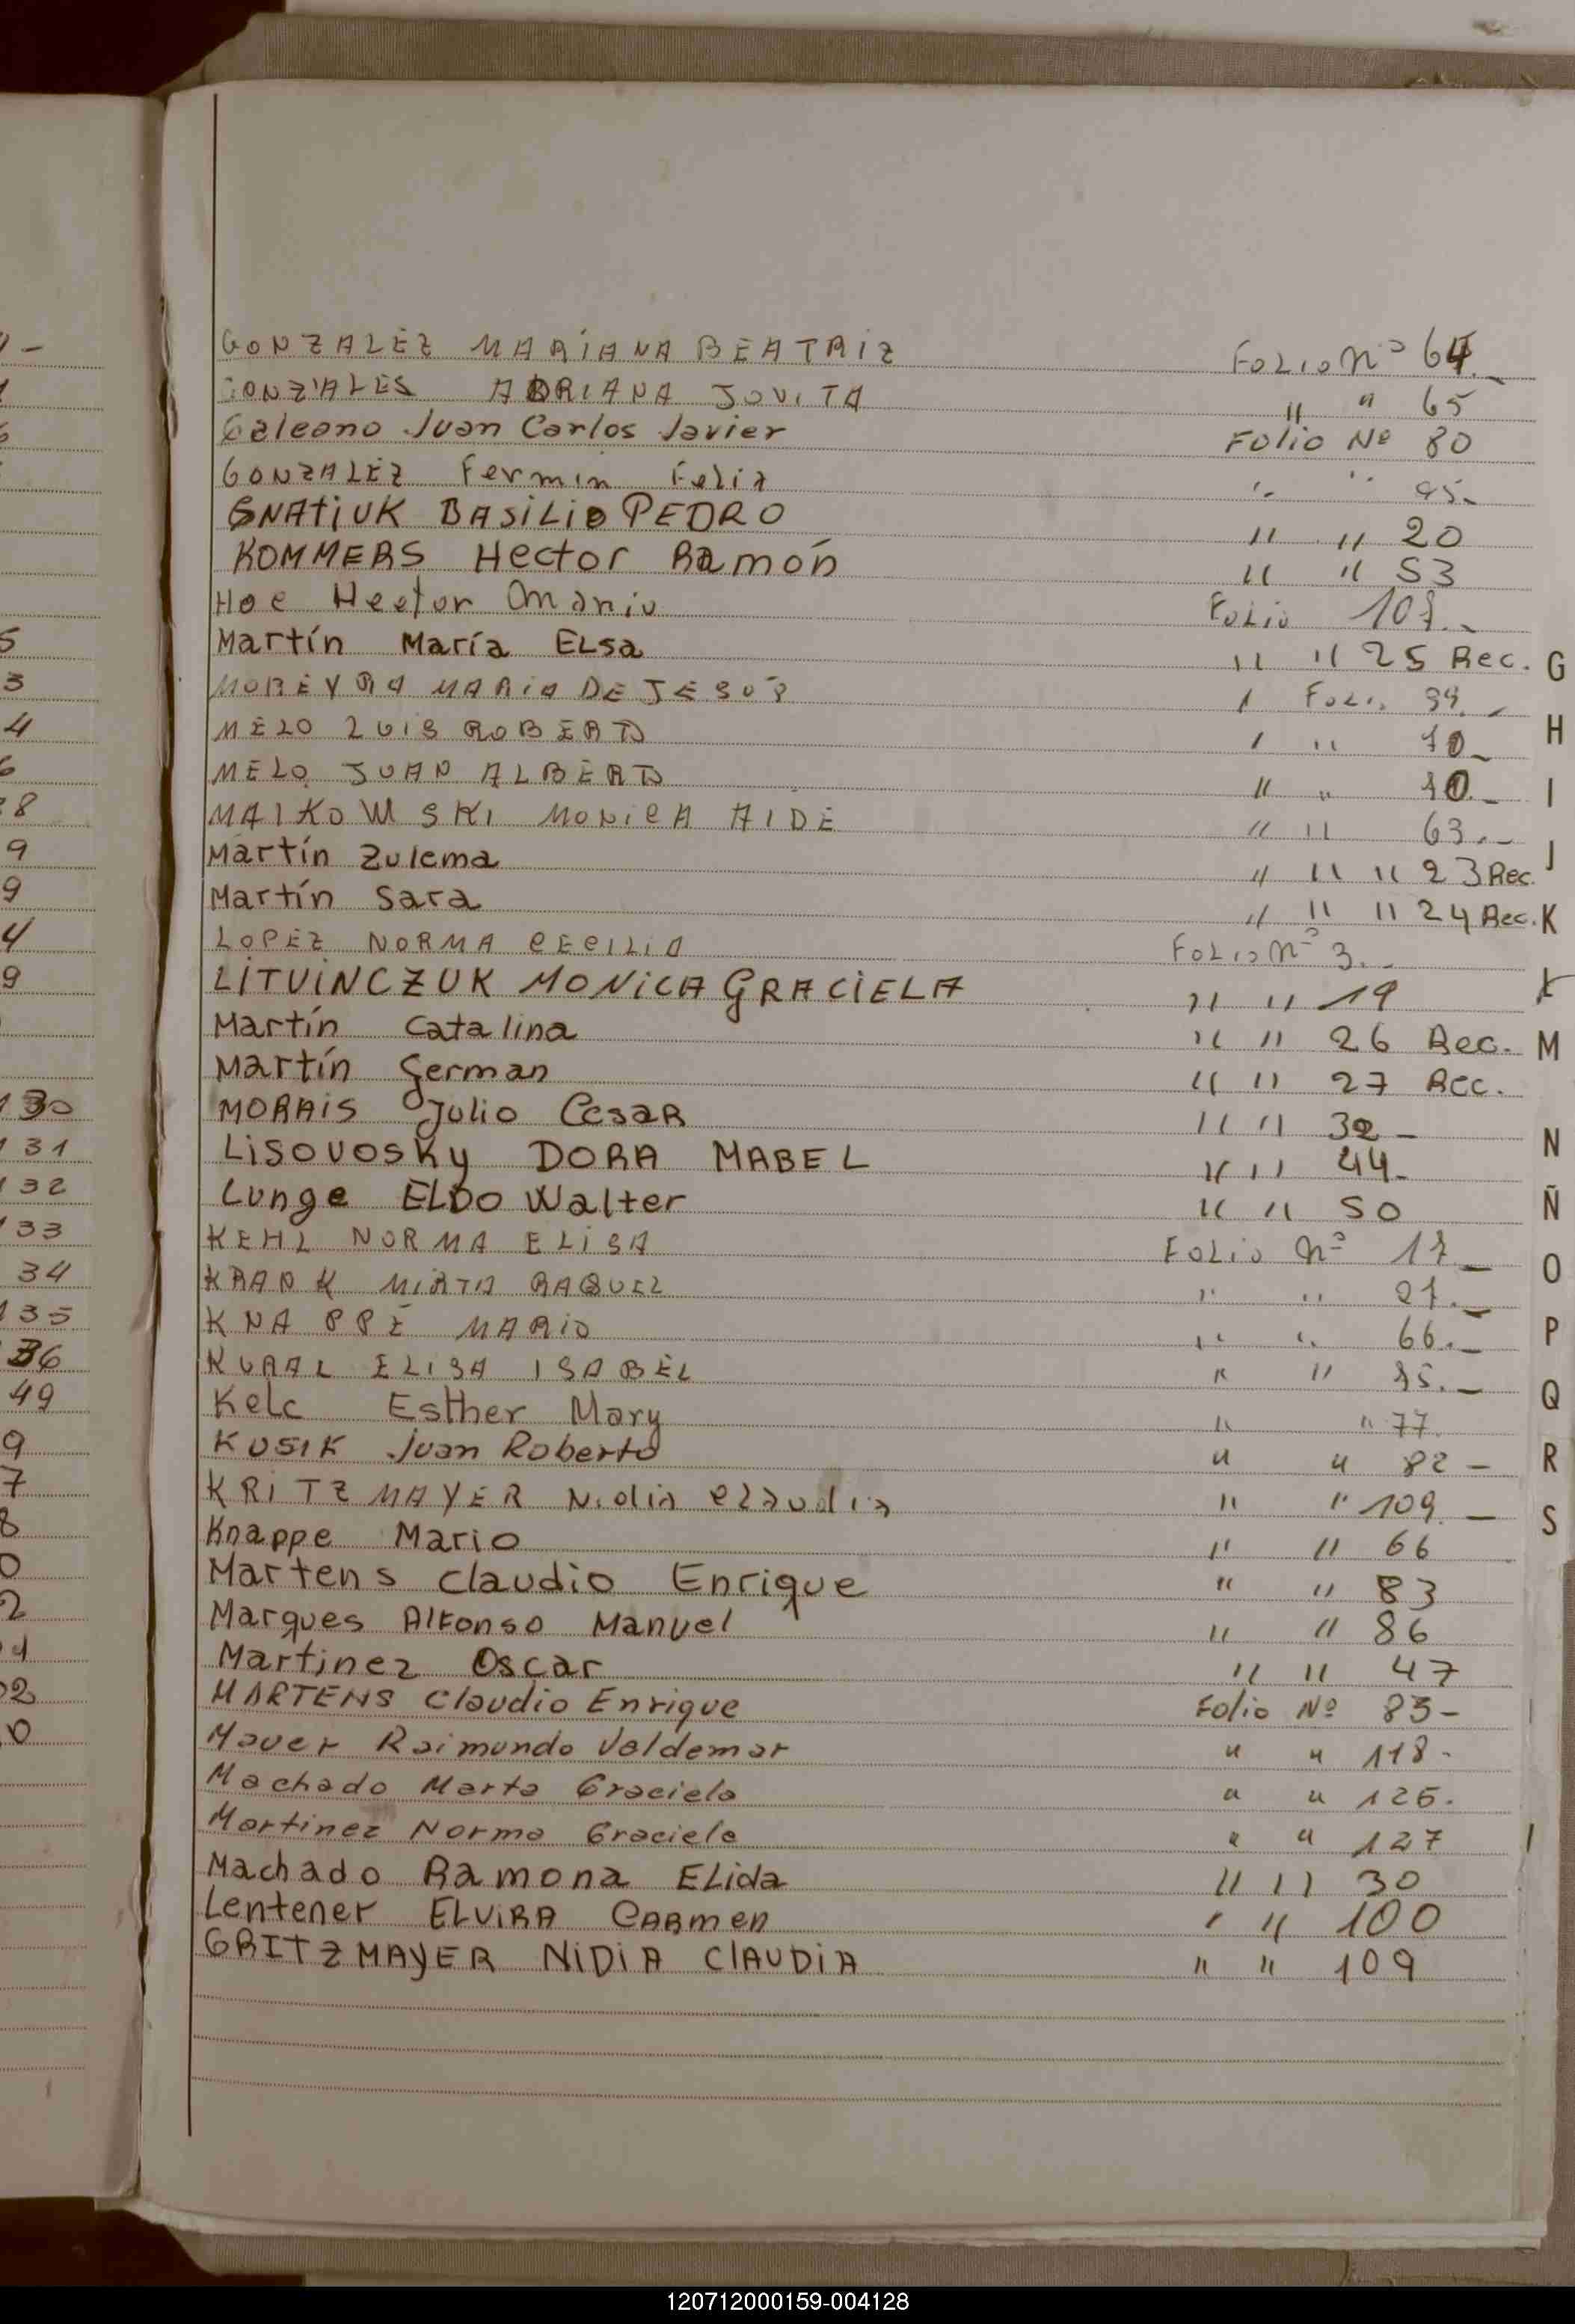 GONZALEZ MARIANA BEATRIZ Folio Nº 64.-
GONZALES ADRIANA JOVITA " " 65
Galeano Juan Carlos Javier Folio Nº 80
GONZALEZ Fermin Felix " " 95.-
GNATIUK BASILIO PEDRO " " 20
KOMMERS Hector Ramón " " 53
Hoe Hector Omario Folio 107.-
Martín María ELsa " " 25 Rec.
MOREYRA MARIA DE JESÚS " Folio 39.-
MELO LUIS ROBERTO " " 10.-
MELO JUAN ALBERTO " " 10.-
MAIKOWSKI MONICA AIDE " " 63.-
Martín Zulema " " " 23 Rec.
Martín Sara " " " 24 Rec.
LOPEZ NORMA CECILIA Folio Nº 3.-
LITVINCZUK MONICA GRACIELA " " 19
Martín Catalina " " 26 Rec.
Martín German " " 27 Rec.
MORAIS Julio CesaR " " 32-
LISOVOSKy DORA MABEL " " 44-
Lunge ELDO Walter " " 50
KEHL NORMA ELISA Folio Nº 17.-
KRANK MIRTA RAQUEL " " 27.-
KNAPPE MARIO " " 66.-
KURAL ELISA ISABEL " " 75.-
Kelc Esther Mary " " 77.
KUSIK Juan Roberto " " 82-
KRITZMAYER Nidia Claudia " " 109.-
Knappe Mario " " 66
Martens claudio Enrique " " 83
Marques Alfonso Manuel " " 86
Martinez Oscar " " 47
MARTENS Claudio Enrique Folio Nº 83-
Mauer Raimundo Valdemar " " 118.
Machado Marta Graciela " " 126.
Martinez Norma Graciela " " 127
Machado Ramona ELida " " 30
Lentener ELVIRA CARMEN " " 100
GRITZMAYER NIDIA CLAUDIA " " 109
G
H
I
J
K
M
N
Ñ
O
P
Q
R
S
120712000159-004128